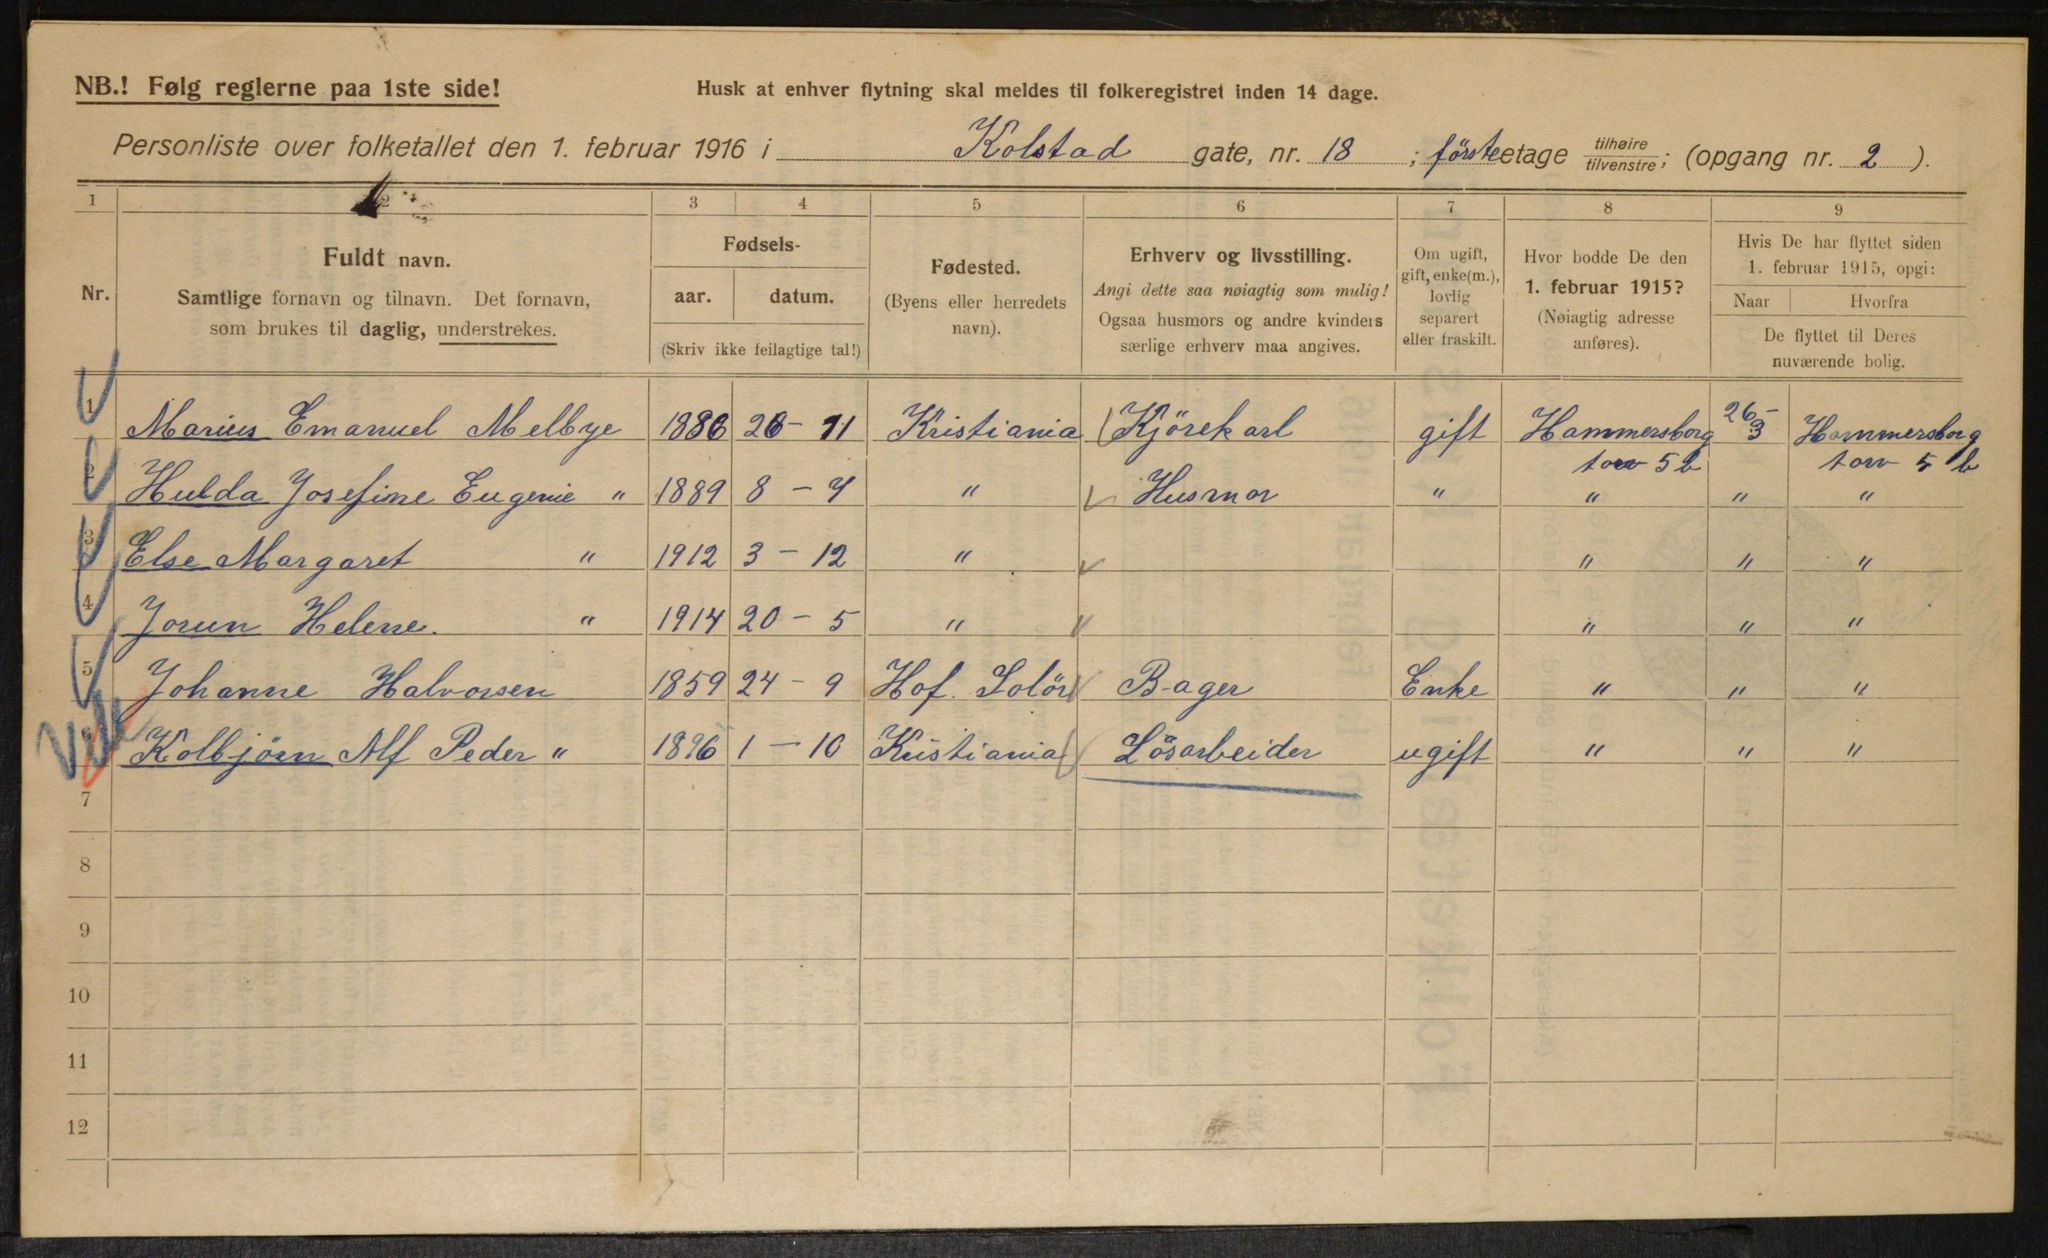 NB.! Følg reglerne paa 1ste side!
Husk at enhver flytning skal meldes til folkeregistret inden 14 dage.
Personliste over folketallet den 1. februar 1916 i Kolstad gate, nr. 18 ; förste etage tilhøire/tilvenstre; (opgang nr. 2 ).
1 2 3 4 5 6 7 8 9
Nr.
Fuldt navn.
Samtlige fornavn og tilnavn. Det fornavn,
som brukes til daglig, understrekes.
Fødsels-
aar. datum.
(Skriv ikke feilagtige tal!)
Fødested.
(Byens eller herredets
navn).
Erhverv og livsstilling.
Angi dette saa nøiagtig som mulig!
Ogsaa husmors og andre kvinders
særlige erhverv maa angives.
Om ugift,
gift, enke(m.),
lovlig
separert
eller fraskilt.
Hvor bodde De den
1. februar 1915?
(Nøiagtig adresse
anføres).
Hvis De har flyttet siden
1. februar 1915, opgi:
Naar Hvorfra
De flyttet til Deres
nuværende bolig.
1 Marius Emanuel Melbye 1886 26 - 11 Kristiania Kjörekarl gift Hammersborg torv 5 b 26-3 Hammersborg torv 5 b
2 Hulda Josefine Eugenie " 1889 8 - 4 " Husmor " " " "
3 Else Margaret " 1912 3 - 12 " " " "
4 Jorun Helene. " 1914 20 - 5 " " " "
5 Johanne Halvorsen 1859 24 - 9 Hof. Solör Bager Enke " " "
6 Kolbjörn Alf Peder " 1896 1 - 10 Kristiania Lösarbeider ugift " " "
7
8
9
10
11
12